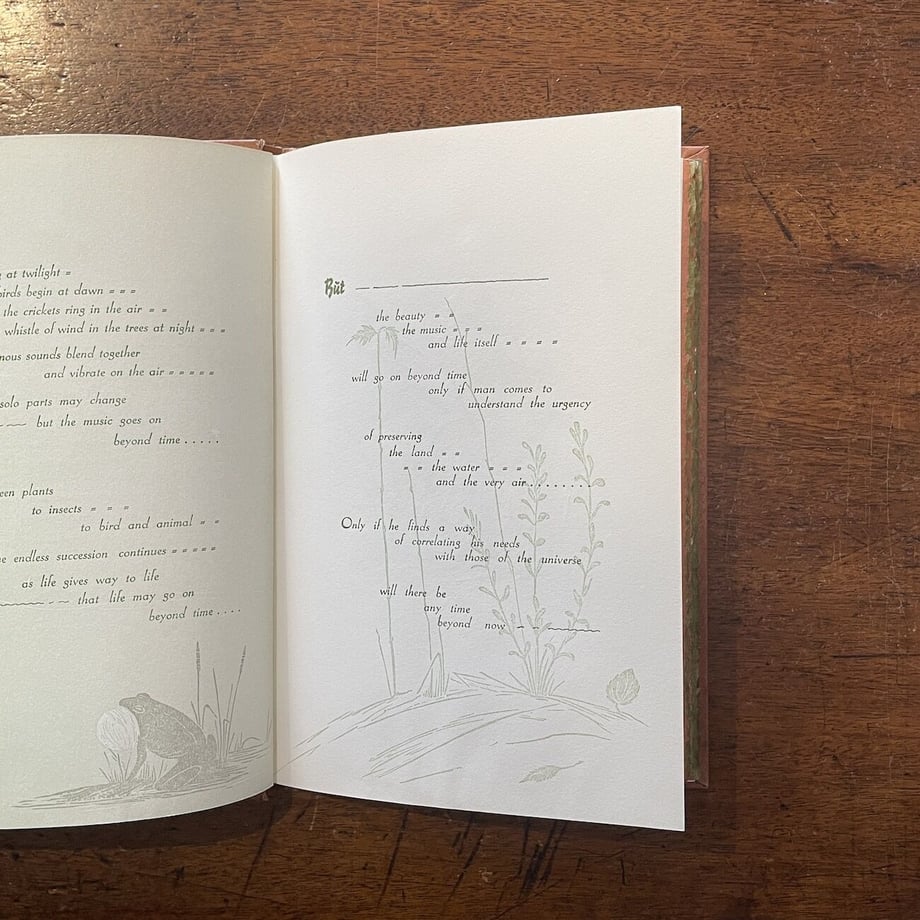 at twilight =
birds begin at dawn = = =
the crickets ring in the air = =
whistle of wind in the trees at night = = =
sounds blend together
and vibrate on the air = = = = =
solo parts may change
but the music goes on
beyond time . . . . .
plants
to insects = = =
to bird and animal = =
endless succession continues = = = = =
as life gives way to life
that life may go on
beyond time . . . .
But — — — ————————
the beauty = =
the music = = =
and life itself = = = =
will go on beyond time
only if man comes to
understand the urgency
of preserving
the land = =
= = the water = = =
and the very air . . . . . . . . .
Only if he finds a way
of correlating his needs
with those of the universe
will there be
any time
beyond now — — ————